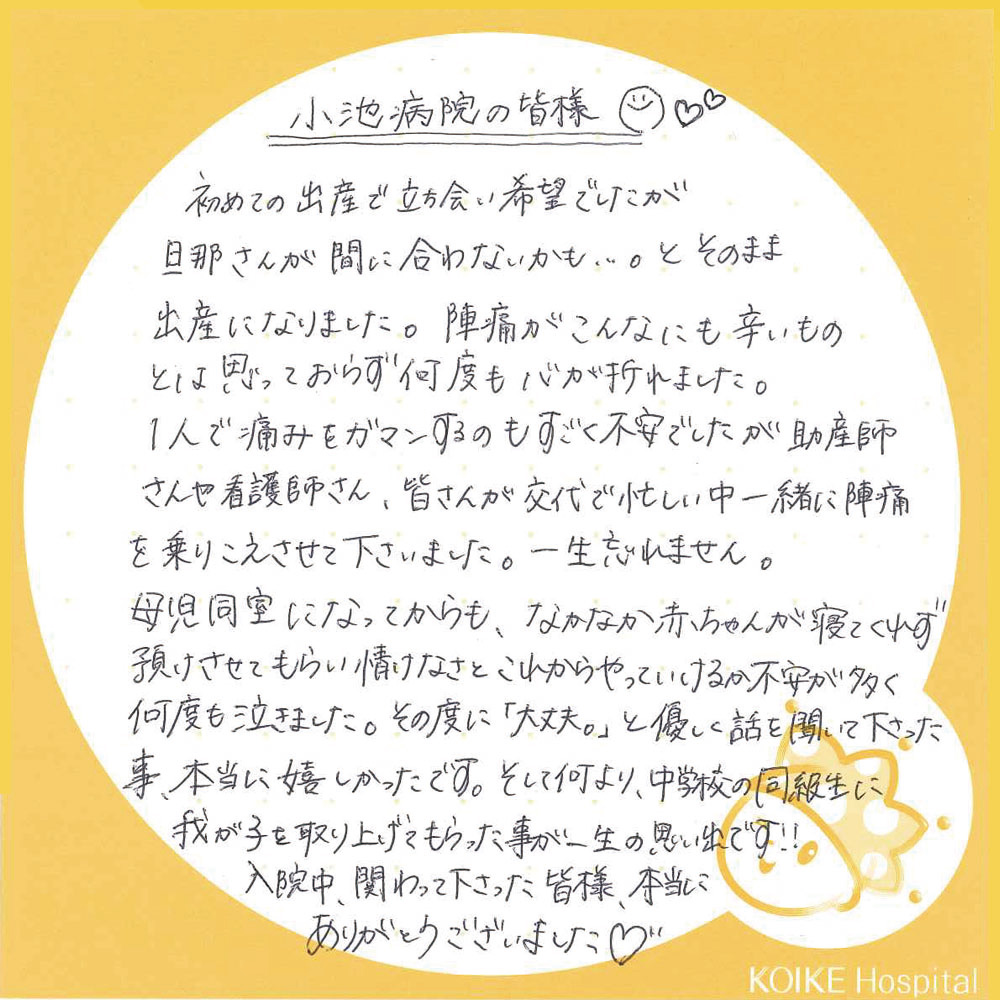 小池病院の皆様
初めての出産で立ち会い希望でしたが
旦那さんが間に合わないかも…。とそのまま
出産になりました。陣痛がこんなにも辛いもの
とは思っておらず何度も心が折れました。
1人で痛みをガマンするのもすごく不安でしたが助産師
さんや看護師さん、皆さんが交代で忙しい中一緒に陣痛
を乗りこえさせて下さいました。一生忘れません。
母児同室になってからも、なかなか赤ちゃんが寝てくれず
預けさせてもらい情けなさとこれからやっていけるか不安が多く
何度も泣きました。その度に「大丈夫。」と優しく話を聞いて下さった
事、本当に嬉しかったです。そして何より、中学校の同級生に
我が子を取り上げてもらった事が一生の思い出です!!
入院中、関わって下さった皆様、本当に
ありがとうございました♡
KOIKE Hospital